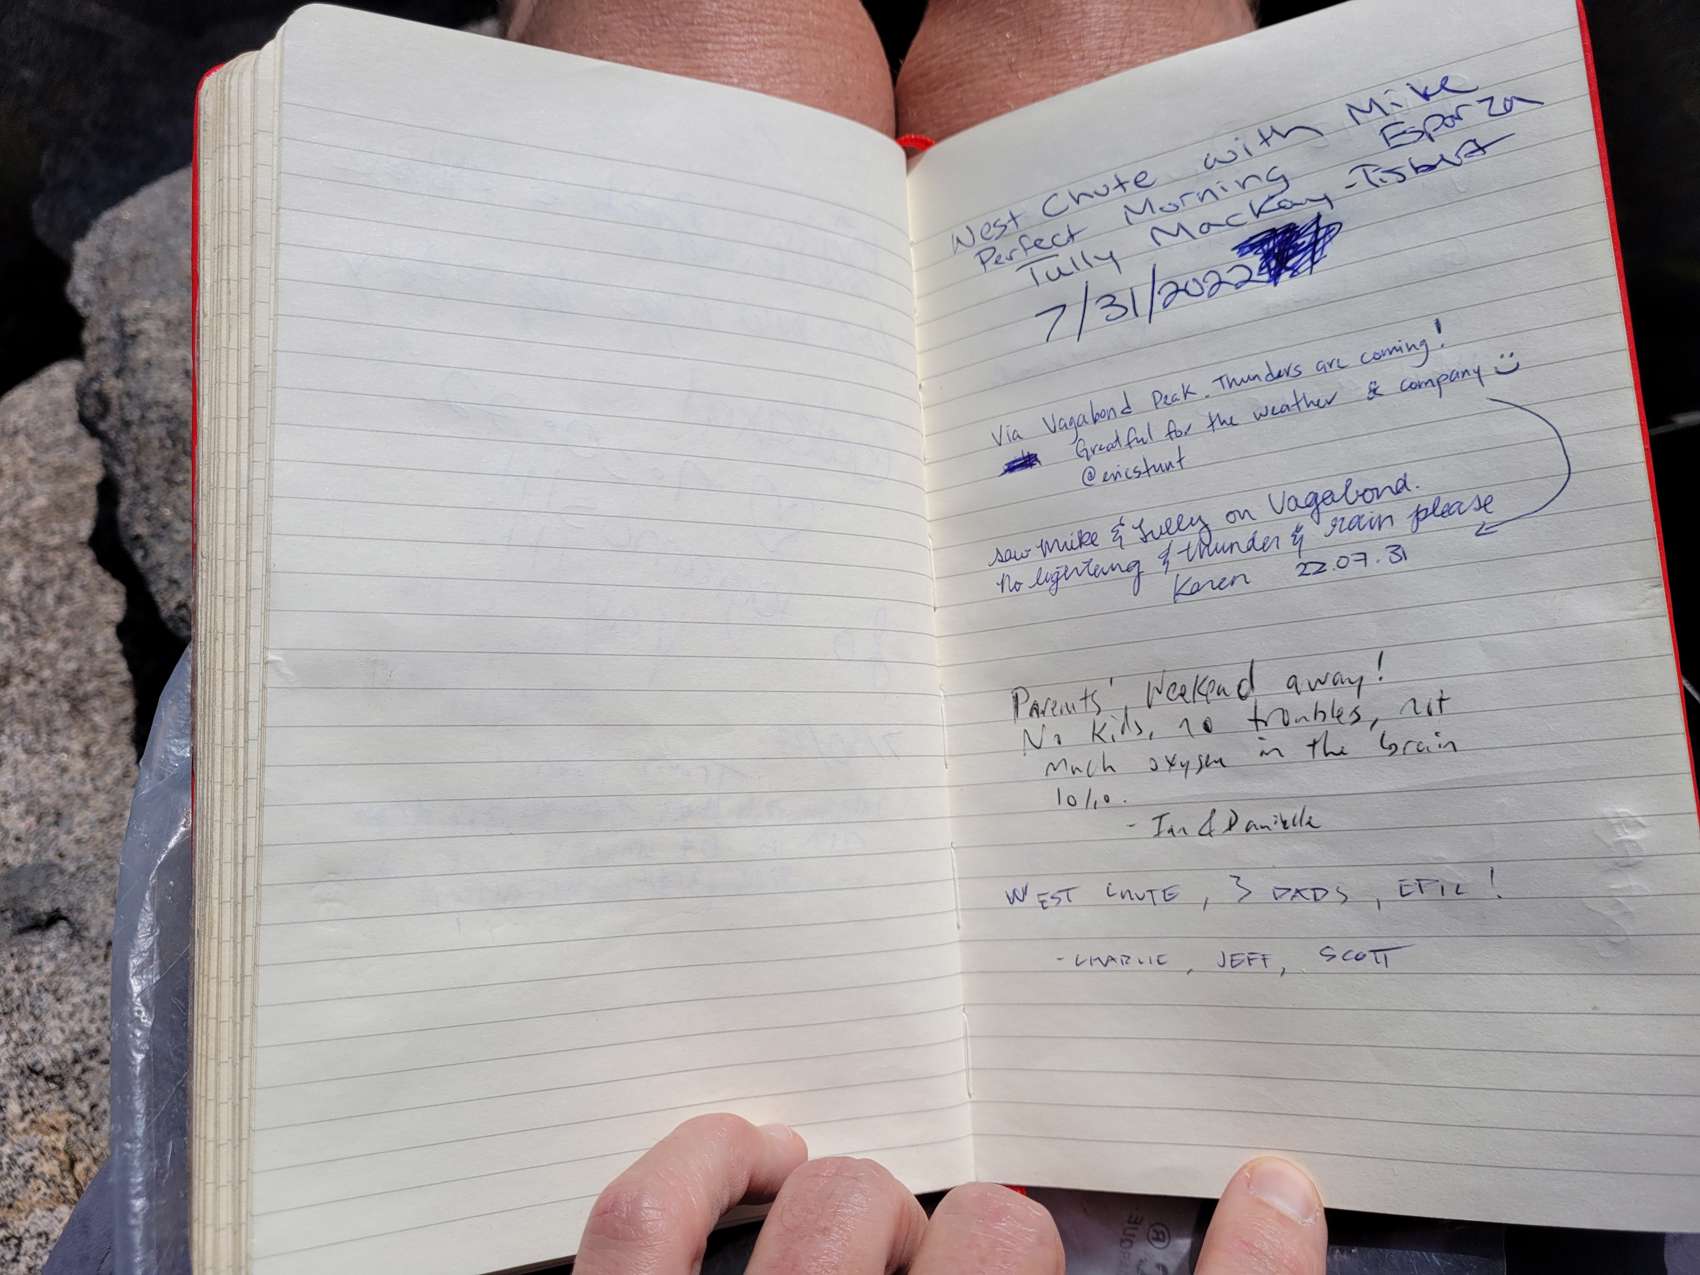 West Chute with Mike
Esparza
Perfect Morning
Tully Mackay-Tisbert
7/31/2022
Via Vagabond Peak. Thunders are coming!
Greatful for the weather & company :)
@ericstunt
saw Mike & Tully on Vagabond.
No lightening & thunder & rain please
Karen 22.07.31
Parents' Weekend away!
No kids, no troubles, not
much oxygen in the brain
10/10.
- Ian & Danielle
WEST CHUTE, 3 DADS, EPIC!
- CHARLIE, JEFF, SCOTT